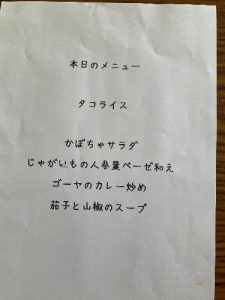 本日のメニュー
タコライス
かぼちゃサラダ
じゃがいもの人参葉ベーゼ和え
ゴーヤのカレー炒め
茄子と山椒のスープ